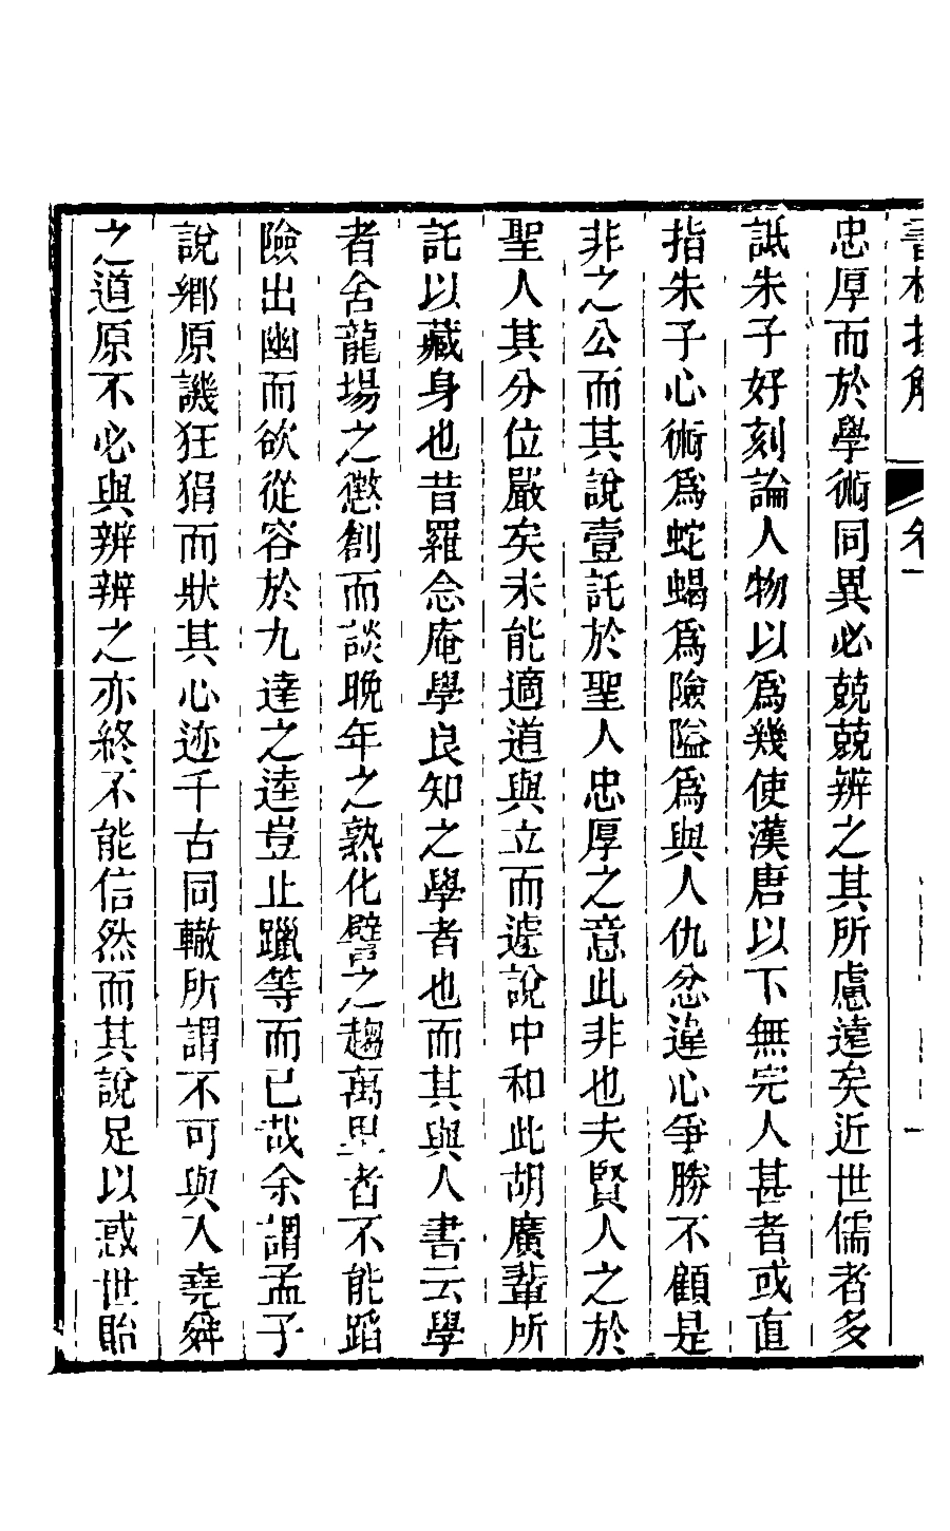 書林揚觶　卷一　一
忠厚而於學術同異必兢兢辨之其所慮遠矣近世儒者多
詆朱子好刻論人物以爲幾使漢唐以下無完人甚者或直
指朱子心術爲蛇蝎爲險隘爲與人仇忿違心爭勝不顧是
非之公而其說壹託於聖人忠厚之意此非也夫賢人之於
聖人其分位嚴矣未能適道與立而遽說中和此胡廣輩所
託以藏身也昔羅念庵學良知之學者也而其與人書云學
者舍龍場之懲創而談晚年之熟化譬之趨萬里者不能蹈
險出幽而欲從容於九達之逵豈止躐等而已哉余謂孟子
說鄉原譏狂狷而狀其心迹千古同轍所謂不可與入堯舜
之道原不必與辨辨之亦終不能信然而其說足以惑世貽